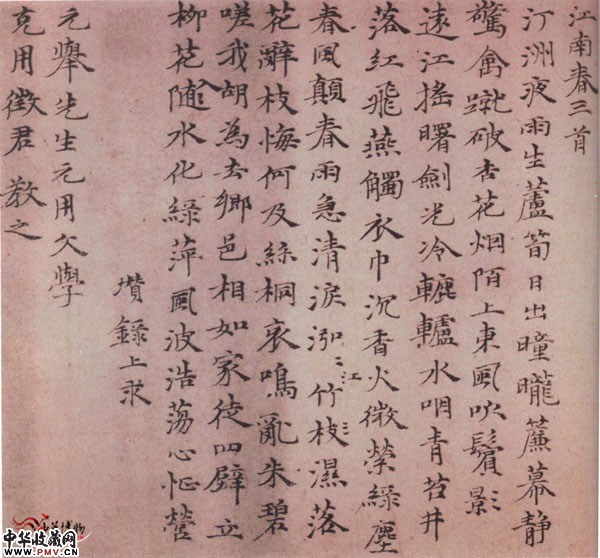 江南春三首
汀洲夜雨生蘆筍日出曈曨簾幕静
驚禽蹴破杏花烟陌上東風吹鬢影
遠江搖曙劍光冷轆轤水咽青苔井
落紅飛燕觸衣巾沉香火微縈綠塵
春風顛春雨急清淚泓〻江竹枝濕落
花辭枝悔何及絲桐哀鳴亂朱碧
嗟我胡為去鄉邑相如家徒四壁立
柳花隨水化綠萍風波浩蕩心怔營
瓚錄上求
元舉先生元用文學
克用徵君教之
中华收藏网
www.PMV.CN